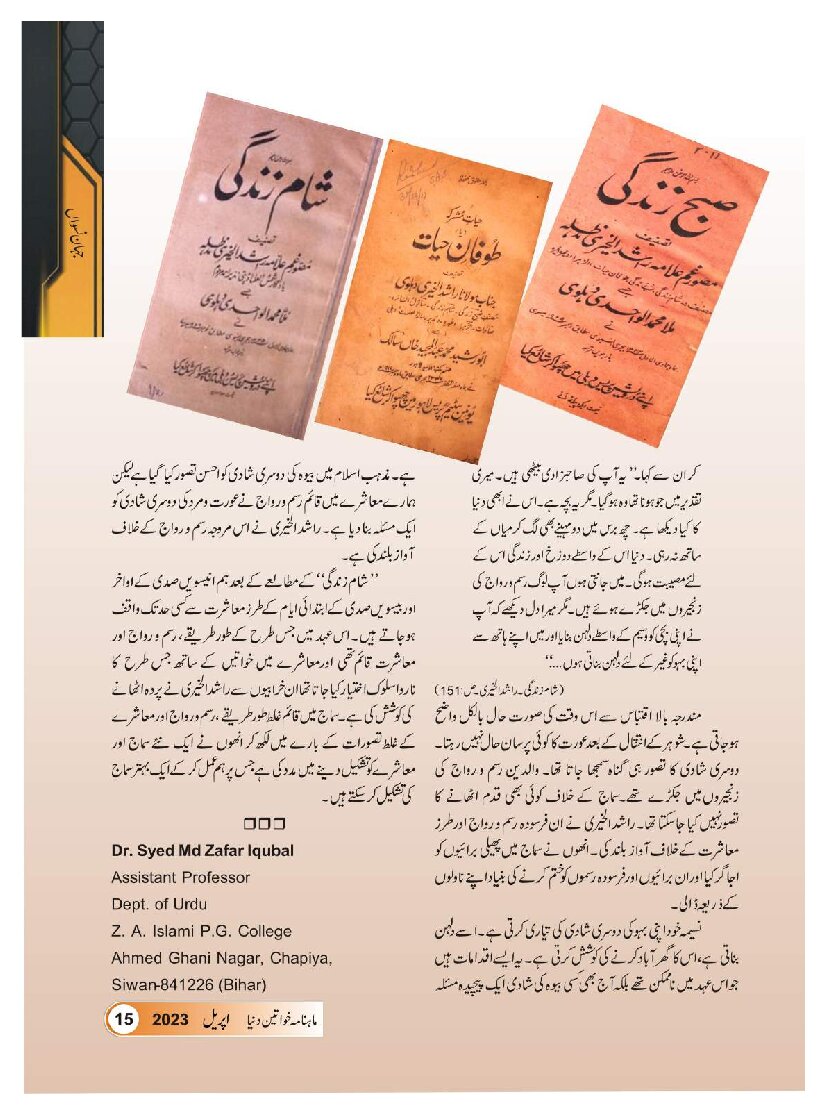 جہان نسواں
شام زندگی
تصنیف
مصور غم علامہ راشد الخیری مدظلہ
ملا محمد الواحدی دہلوی
نے
طوفان حیات
تصنیف
جناب مولانا راشد الخیری دہلوی
یونین سٹیم پریس لاہور میں چھپوا کر شائع کیا
صبح زندگی
تصنیف
مصور غم علامہ راشد الخیری مدظلہ
ملا محمد الواحدی دہلوی
نے
کر ان سے کہا۔’’یہ آپ کی صاحبزادی بیٹھی ہیں۔ میری
تقدیر میں جو ہونا تھا وہ ہوگیا۔ مگر یہ بچہ ہے۔ اس نے ابھی دنیا
کا کیا دیکھا ہے۔ چھ برس میں دو مہینے بھی لگ کر میاں کے
ساتھ نہ رہی۔ دنیا اس کے واسطے دوزخ اور زندگی اس کے
لئے مصیبت ہوگی۔ میں جانتی ہوں آپ لوگ رسم و رواج کی
زنجیروں میں جکڑے ہوئے ہیں۔ مگر میرا دل دیکھے کہ آپ
نے اپنی بچی کو وسیم کے واسطے دلہن بنایا اور میں اپنے ہاتھ سے
اپنی بہو کو غیر کے لئے دلہن بناتی ہوں....‘‘
(شام زندگی۔ راشد الخیری۔ ص:151)
مندرجہ بالا اقتباس سے اس وقت کی صورت حال بالکل واضح
ہوجاتی ہے۔ شوہر کے انتقال کے بعد عورت کا کوئی پرسان حال نہیں رہتا۔
دوسری شادی کا تصور ہی گناہ سمجھا جاتا تھا۔ والدین رسم و رواج کی
زنجیروں میں جکڑے تھے۔ سماج کے خلاف کوئی بھی قدم اٹھانے کا
تصور نہیں کیا جاسکتا تھا۔ راشد الخیری نے ان فرسودہ رسم و رواج اور طرز
معاشرت کے خلاف آواز بلند کی۔ انھوں نے سماج میں پھیلی برائیوں کو
اجاگر کیا اور ان برائیوں اور فرسودہ رسموں کو ختم کرنے کی بنیاد اپنے ناولوں
کے ذریعہ ڈالی۔
نسیمہ خود اپنی بہو کی دوسری شادی کی تیاری کرتی ہے۔ اسے دلہن
بناتی ہے، اس کا گھر آباد کرنے کی کوشش کرتی ہے۔ یہ ایسے اقدامات ہیں
جو اس عہد میں ناممکن تھے بلکہ آج بھی کسی بیوہ کی شادی ایک پیچیدہ مسئلہ
ہے۔ مذہب اسلام میں بیوہ کی دوسری شادی کو احسن تصور کیا گیا ہے لیکن
ہمارے معاشرے میں قائم رسم و رواج نے عورت و مرد کی دوسری شادی کو
ایک مسئلہ بنا دیا ہے۔ راشد الخیری نے اس مروجہ رسم و رواج کے خلاف
آواز بلند کی ہے۔
’’شام زندگی‘‘ کے مطالعے کے بعد ہم انیسویں صدی کے اواخر
اور بیسویں صدی کے ابتدائی ایام کے طرز معاشرت سے کسی حد تک واقف
ہوجاتے ہیں۔ اس عہد میں جس طرح کے طور طریقے، رسم و رواج اور
معاشرت قائم تھی اور معاشرے میں خواتین کے ساتھ جس طرح کا
ناروا سلوک اختیار کیا جاتا تھا ان خرابیوں سے راشد الخیری نے پردہ اٹھانے
کی کوشش کی ہے۔ سماج میں قائم غلط طور طریقے، رسم و رواج اور معاشرے
کے غلط تصورات کے بارے میں لکھ کر انھوں نے ایک نئے سماج اور
معاشرے کو تشکیل دینے میں مدد کی ہے جس پر ہم عمل کرکے ایک بہتر سماج
کی تشکیل کرسکتے ہیں۔
Dr. Syed Md Zafar Iqubal
Assistant Professor
Dept. of Urdu
Z. A. Islami P.G. College
Ahmed Ghani Nagar, Chapiya,
Siwan-841226 (Bihar)
ماہنامہ خواتین دنیا اپریل 2023 15